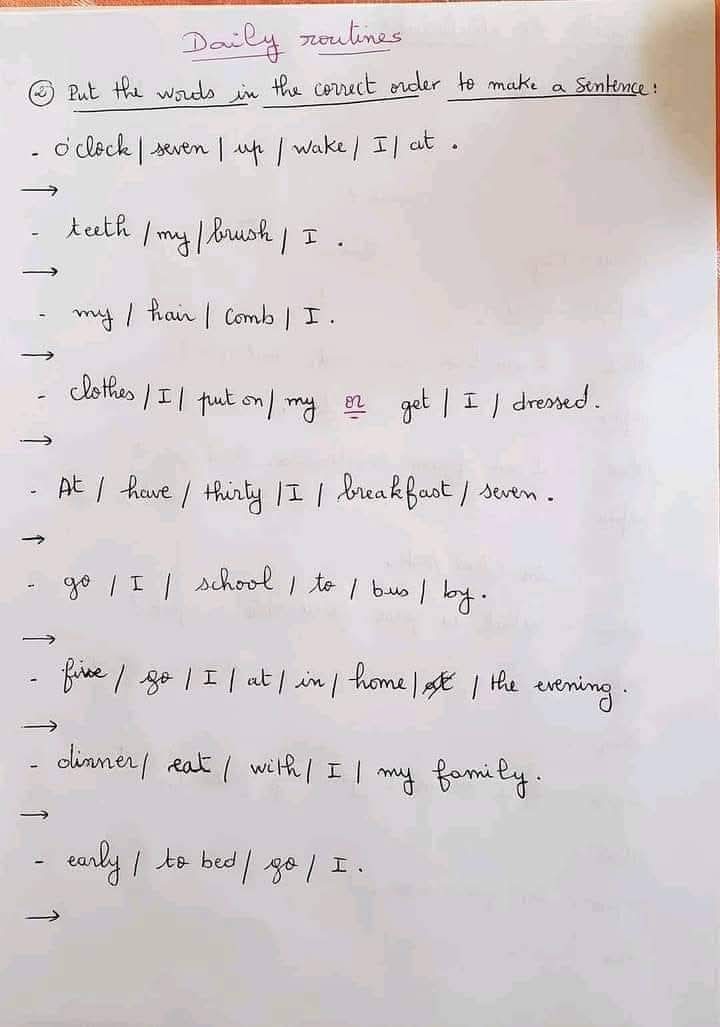 Daily routines
② Put the words in the correct order to make a sentence:
- o'clock / seven / up / wake / I / at .
→
- teeth / my / brush / I .
→
- my / hair / comb / I .
→
- clothes / I / put on / my or get / I / dressed .
→
- At / have / thirty / I / breakfast / seven .
→
- go / I / school / to / bus / by .
→
- five / go / I / at / in / home / / the evening .
→
- dinner / eat / with / I / my family .
→
- early / to bed / go / I .
→